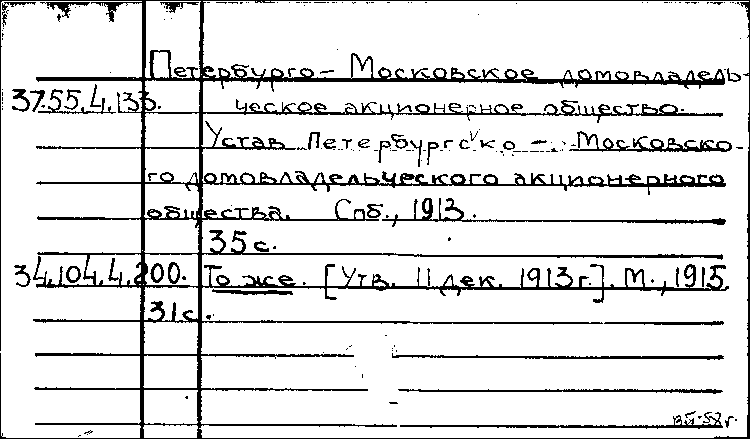 Петербурго-Московское домовладель-
37.55.4.133. ческое акционерное общество.
Устав Петербургско-Московско-
го домовладельческого акционерного
общества. Спб., 1913.
35 с.
34.104.4.200. То же. [Утв. 11 дек. 1913 г.]. М., 1915.
31 с.